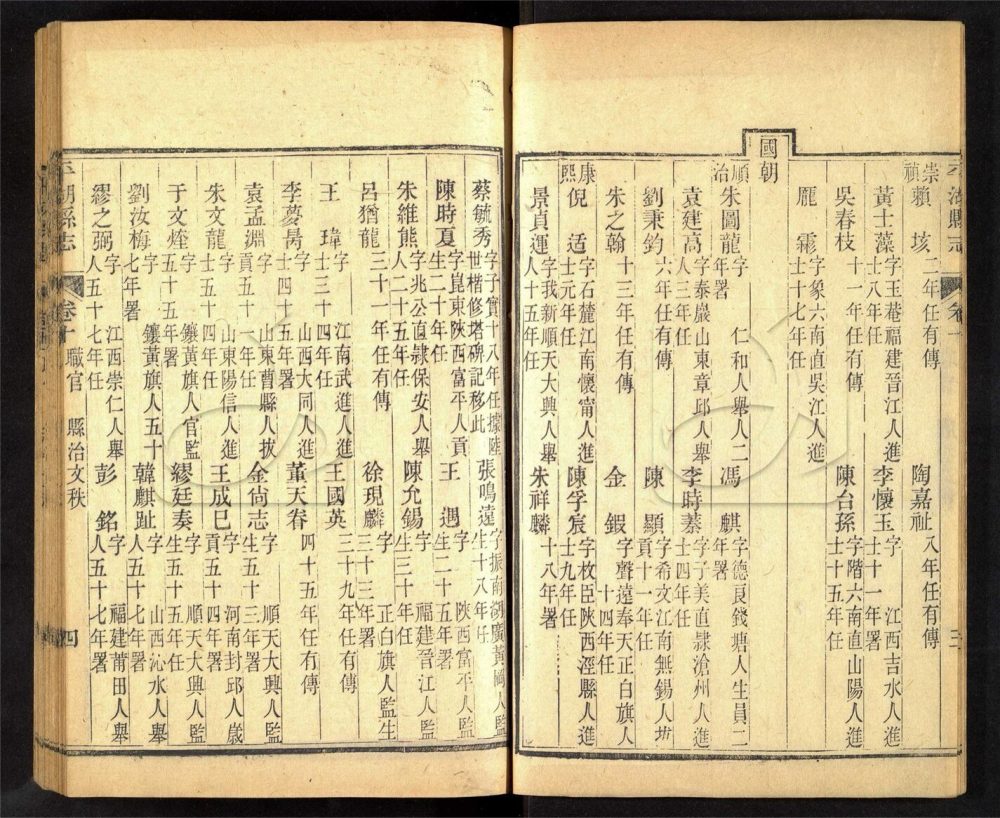 平湖縣志 卷十 三
崇禎
賴垓 二年任有傳
陶嘉祉 八年任有傳
黃士藻 字玉菴福建晉江人進士八年任
李懷玉 字 江西吉水人進士十一年署
吳春枝 十一年任有傳
陳台孫 字階六南直山陽人進士十五年任
龎霦 字象六南直吳江人進士十七年任
國朝
順治
朱圖龍 字 仁和人舉人二年署
馮麒 字德良錢塘人生員二年署
袁建高 字泰巖山東章邱人舉人三年任
李時蓁 字子美直隷滄州人進士四年任
劉秉鈞 六年任有傳
陳顯 字希文江南無錫人拔貢十一年任
朱之翰 十三年任有傳
金鍜 字聲遠奉天正白旗人十四年任
康熙
倪适 字石麓江南懷甯人進士元年任
陳孚宸 字枚臣陝西涇縣人進士九年任
景貞運 字我新順天大興人舉人十五年任
朱祥麟 十八年署
蔡毓秀 字子實十八年任據陸世楷修塔碑記移此
張鳴遠 字振南湖廣黃岡人監生十八年任
陳時夏 字崑東陝西富平人貢生二十年任
王遇 字 陝西富平人監生二十五年署
朱維熊 字兆公直隷保安人舉人二十五年任
陳允錫 字 福建晉江人監生三十年任
呂猶龍 三十一年任有傳
徐現麟 字 正白旗人監生三十三年署
王瑋 字 江南武進人進士三十四年任
王國英 三十九年任有傳
李蕡昺 字 山西大同人進士四十五年署
董天眷 四十五年任有傳
袁孟淵 字 山東曹縣人拔貢五十一年任
金尙志 字 順天大興人監生五十三年署
朱文龍 字 山東陽信人進士五十四年任
王成巳 字 河南封邱人歲貢五十四年署
于文煃 字 鑲黃旗人官監五十五年署
繆廷奏 字 順天大興人監生五十五年任
劉汝梅 字 鑲黃旗人五十七年署
韓麒趾 字 山西沁水人舉人五十七年署
繆之弼 字 江西崇仁人舉人五十七年任
彭銘 字 福建莆田人舉人五十七年署
平湖縣志 卷十 職官 縣治文秩 四